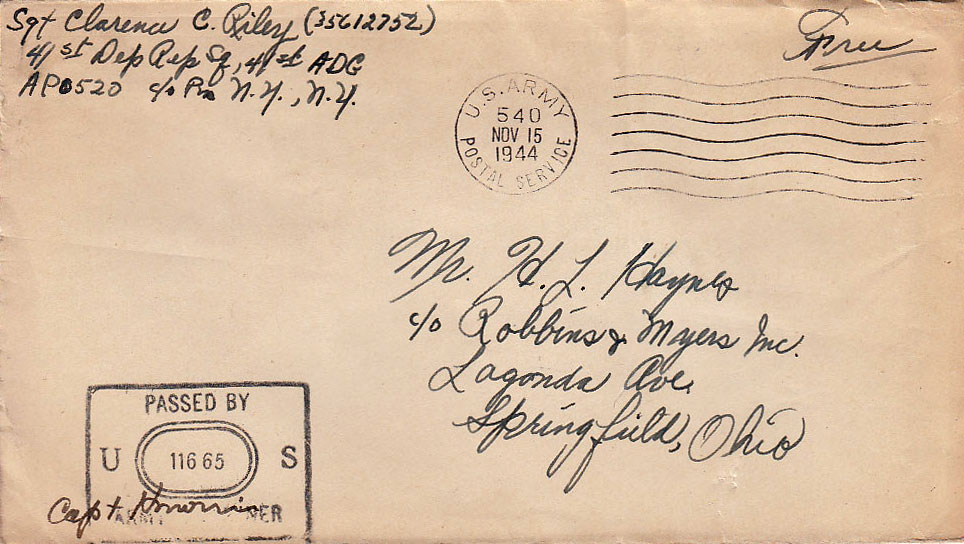 Sgt Clarence C. Riley (35612752)
41st Dep Rep Sq, 41st ADG
APO520 c/o Pm N.Y., N.Y.
Free
U.S. ARMY
540
NOV 15
1944
POSTAL SERVICE
Mr. H. L. Haynes
c/o Robbins & Myers Inc.
Lagonda Ave.
Springfield, Ohio
PASSED BY
U 11665 S
Capt
ARMY NER